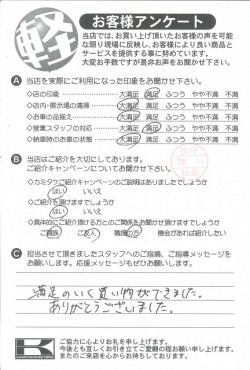 軽
お客様アンケート
当店では、お買い上げ頂いたお客様の声を可能
な限り現場に反映し、お客様により良い商品と
サービスを提供する事に努めています。
大変お手数ですが是非お声をお聞かせ下さい。
A 当店を実際にご利用になった印象をお聞かせ下さい。
◇店の印象 大満足 満足 ふつう やや不満 不満
◇店内・展示場の清掃 大満足 満足 ふつう やや不満 不満
◇お車の品揃え 大満足 満足 ふつう やや不満 不満
◇営業スタッフの対応 大満足 満足 ふつう やや不満 不満
◇納車時のお車の状態 大満足 満足 ふつう やや不満 不満
B 当店はご紹介を大切にしております。
ご紹介キャンペーンについてお聞かせ下さい。
◇カミタケご紹介キャンペーンのご説明はありましたでしょうか
はい いいえ
◇ご紹介を頂けますでしょうか
はい いいえ
◇具体的にご紹介頂ける方とのご関係をお聞かせ頂けますでしょうか
ご親族 ご友人 職場の方 機会があれば紹介したい
C 担当させて頂きましたスタッフへのご指摘、ご指導メッセージを
お願いします。応援メッセージもぜひお願いします。
満足のいく買い物ができました。
ありがとうございました。
K
ご協力に心よりお礼を申し上げます。
今後とも宜しくお引き立てご愛顧の程お願い申し上げます。
またのご来店を心からお待ちしております。